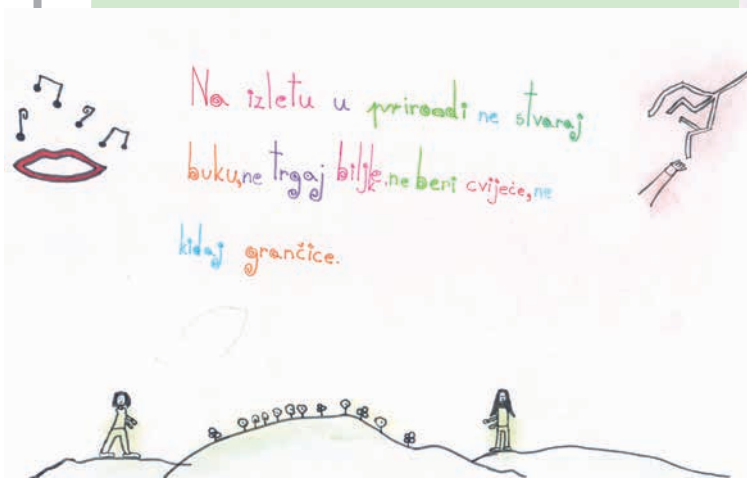 Na izletu u priroodi ne stvaraj
buku,ne trgaj biljke,ne beri cvijeće,ne
kidaj grančice.